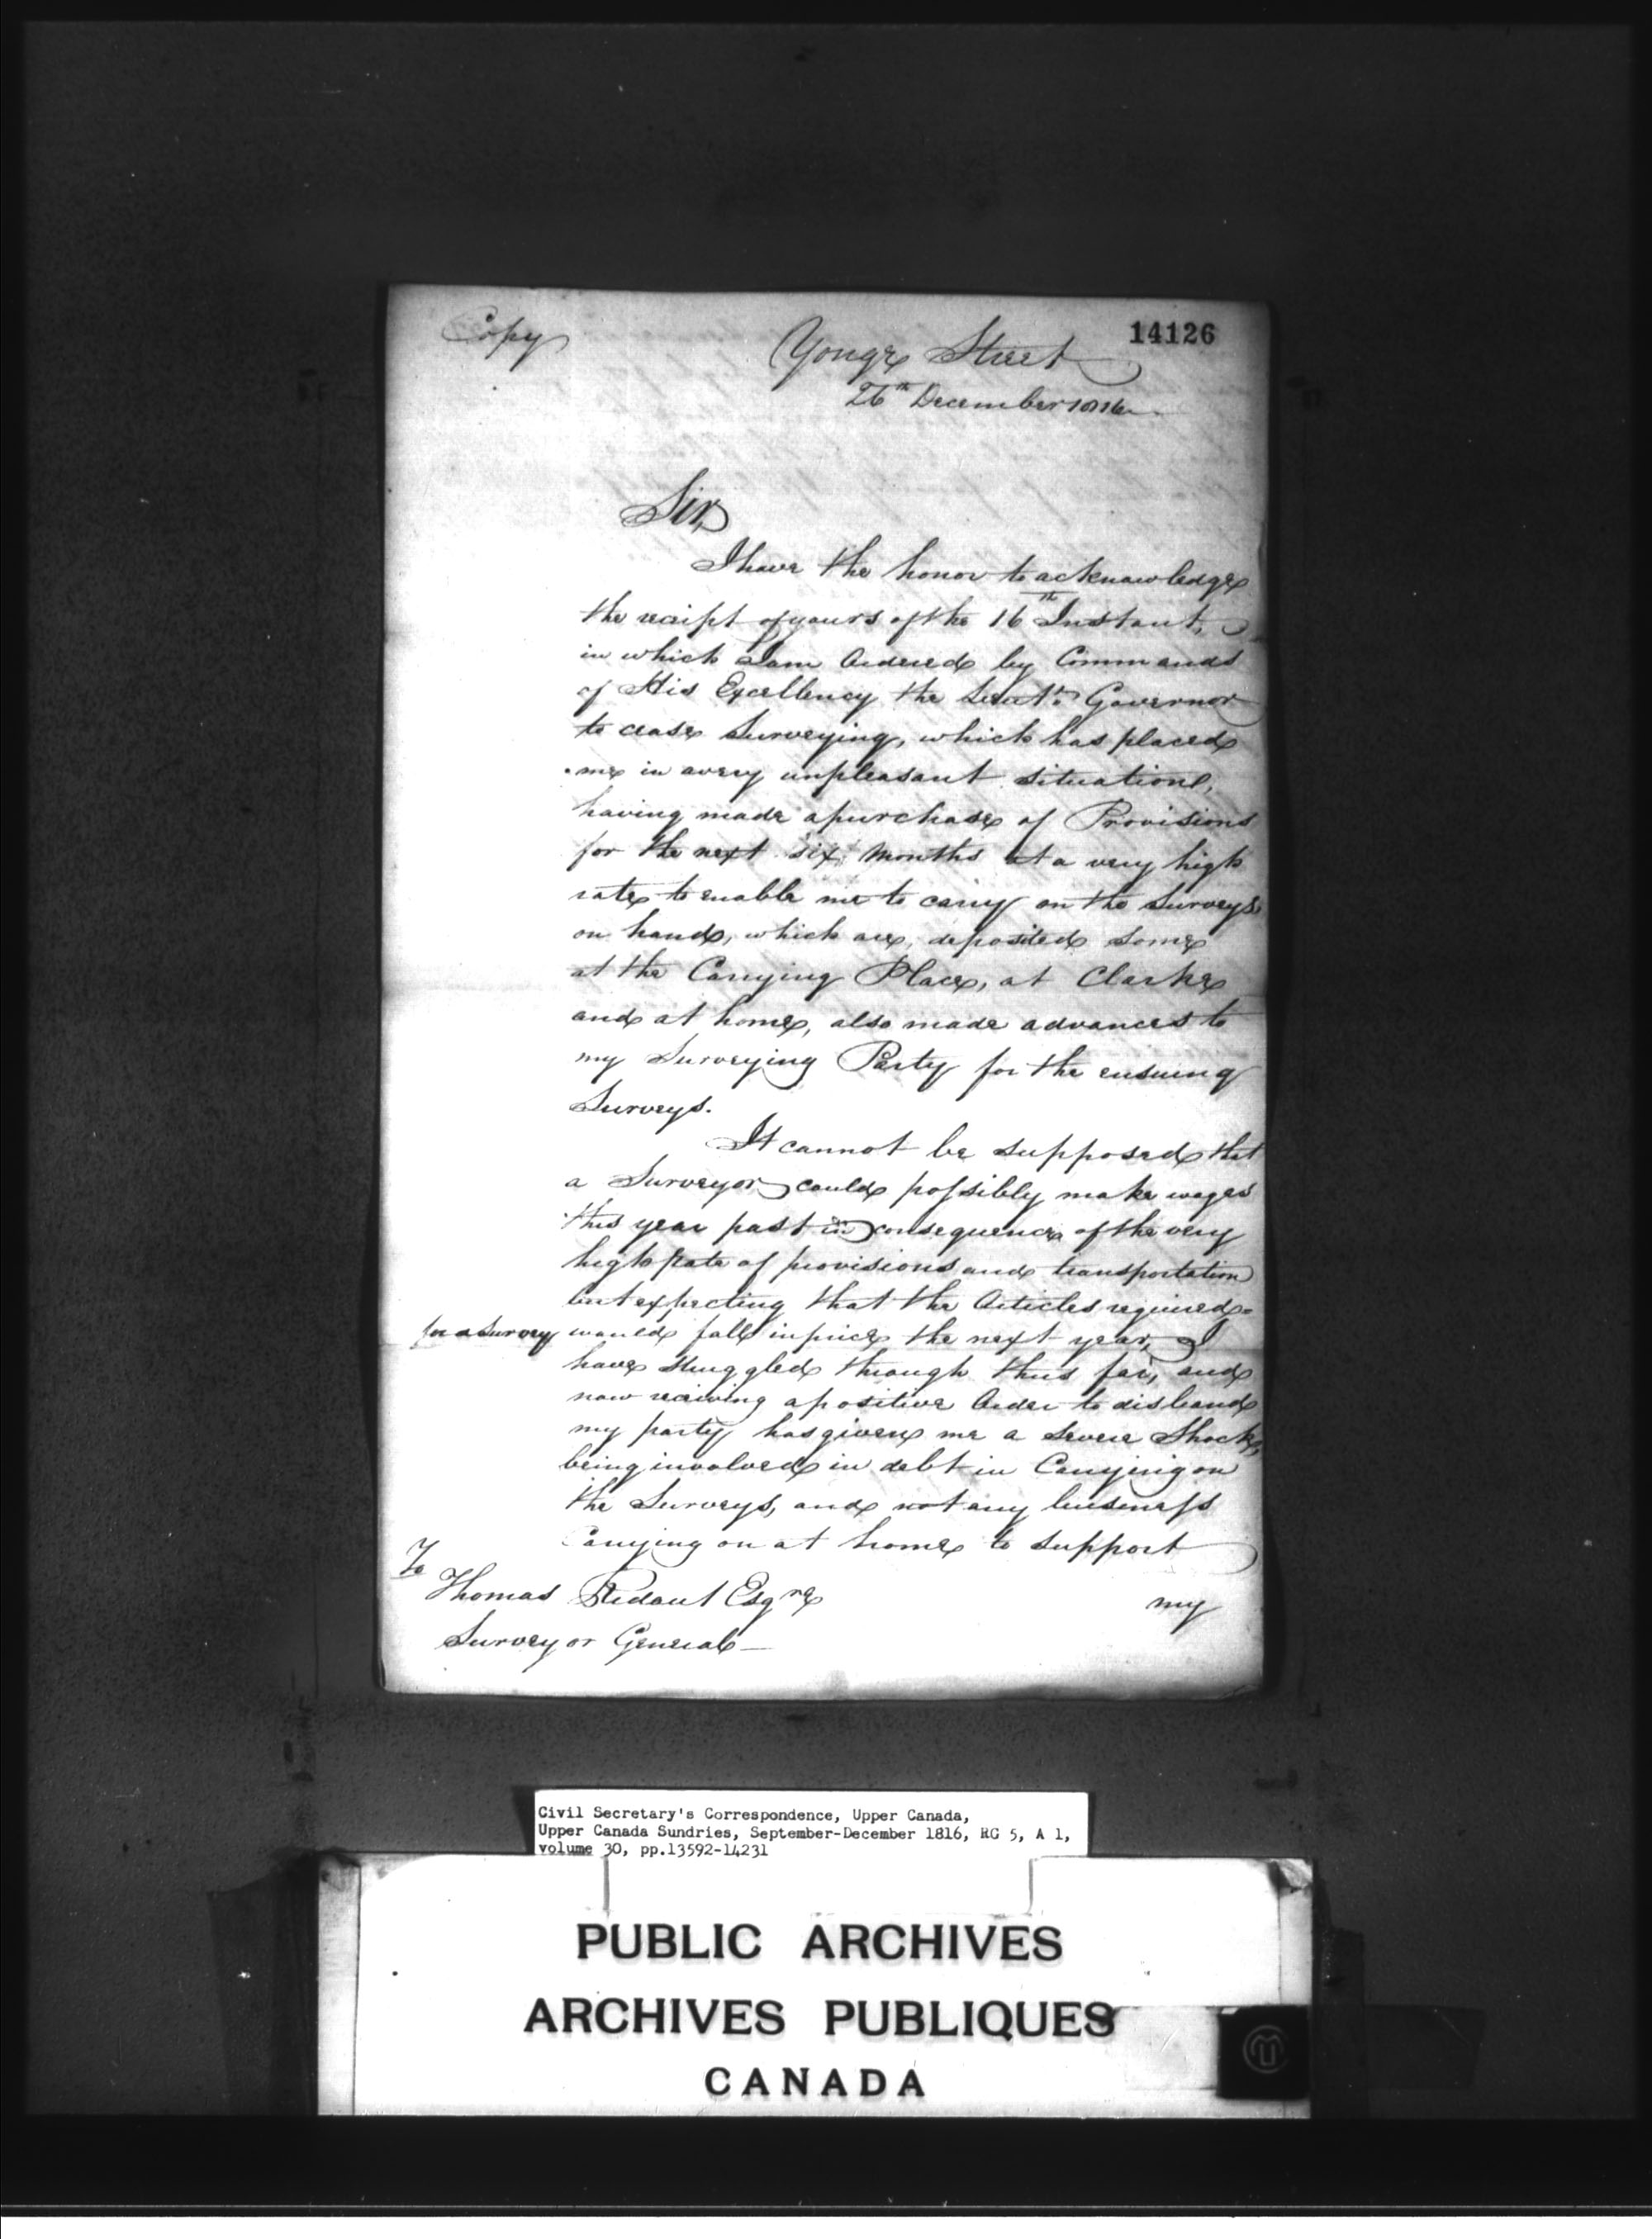 Copy
14126
Yonge Street
26th December 1816
Sir,
I have the honor to acknowledge
the receipt of yours of the 16th Instant,
in which I am Ordered by Commands
of His Excellency the Lieut.t Governor
to cease Surveying, which has placed
me in a very unpleasant situation,
having made a purchase of Provisions
for the next six Months at a very high
rate to enable me to carry on the Surveys
on hand, which are, deposited some
at the Carrying Place, at Clarke
and at home, also made advances to
my Surveying Party for the ensuing
Surveys.
It cannot be supposed that
a Surveyor could possibly make wages
this year past in consequence of the very
high rate of provisions and transportation
but expecting that the Articles required
for a Survey would fall in price the next year, I
have struggled through thus far, and
now receiving a positive Order to disband
my party has given me a Severe Shock,
being involved in debt in Carrying on
the Surveys, and not any business
Carrying on at home to support
my
To
Thomas Ridout Esqre
Surveyor General
Civil Secretary's Correspondence, Upper Canada,
Upper Canada Sundries, September-December 1816, RG 5, A 1,
volume 30, pp.13592-14231
PUBLIC ARCHIVES
ARCHIVES PUBLIQUES
CANADA